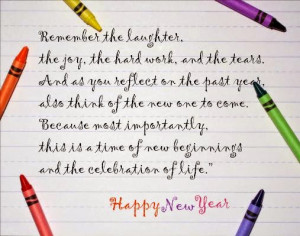 Remember the laughter,
the joy, the hard work, and the tears.
And as you reflect on the past year,
also think of the new one to come.
Because most importantly,
this is a time of new beginnings
and the celebration of life."
Happy New Year